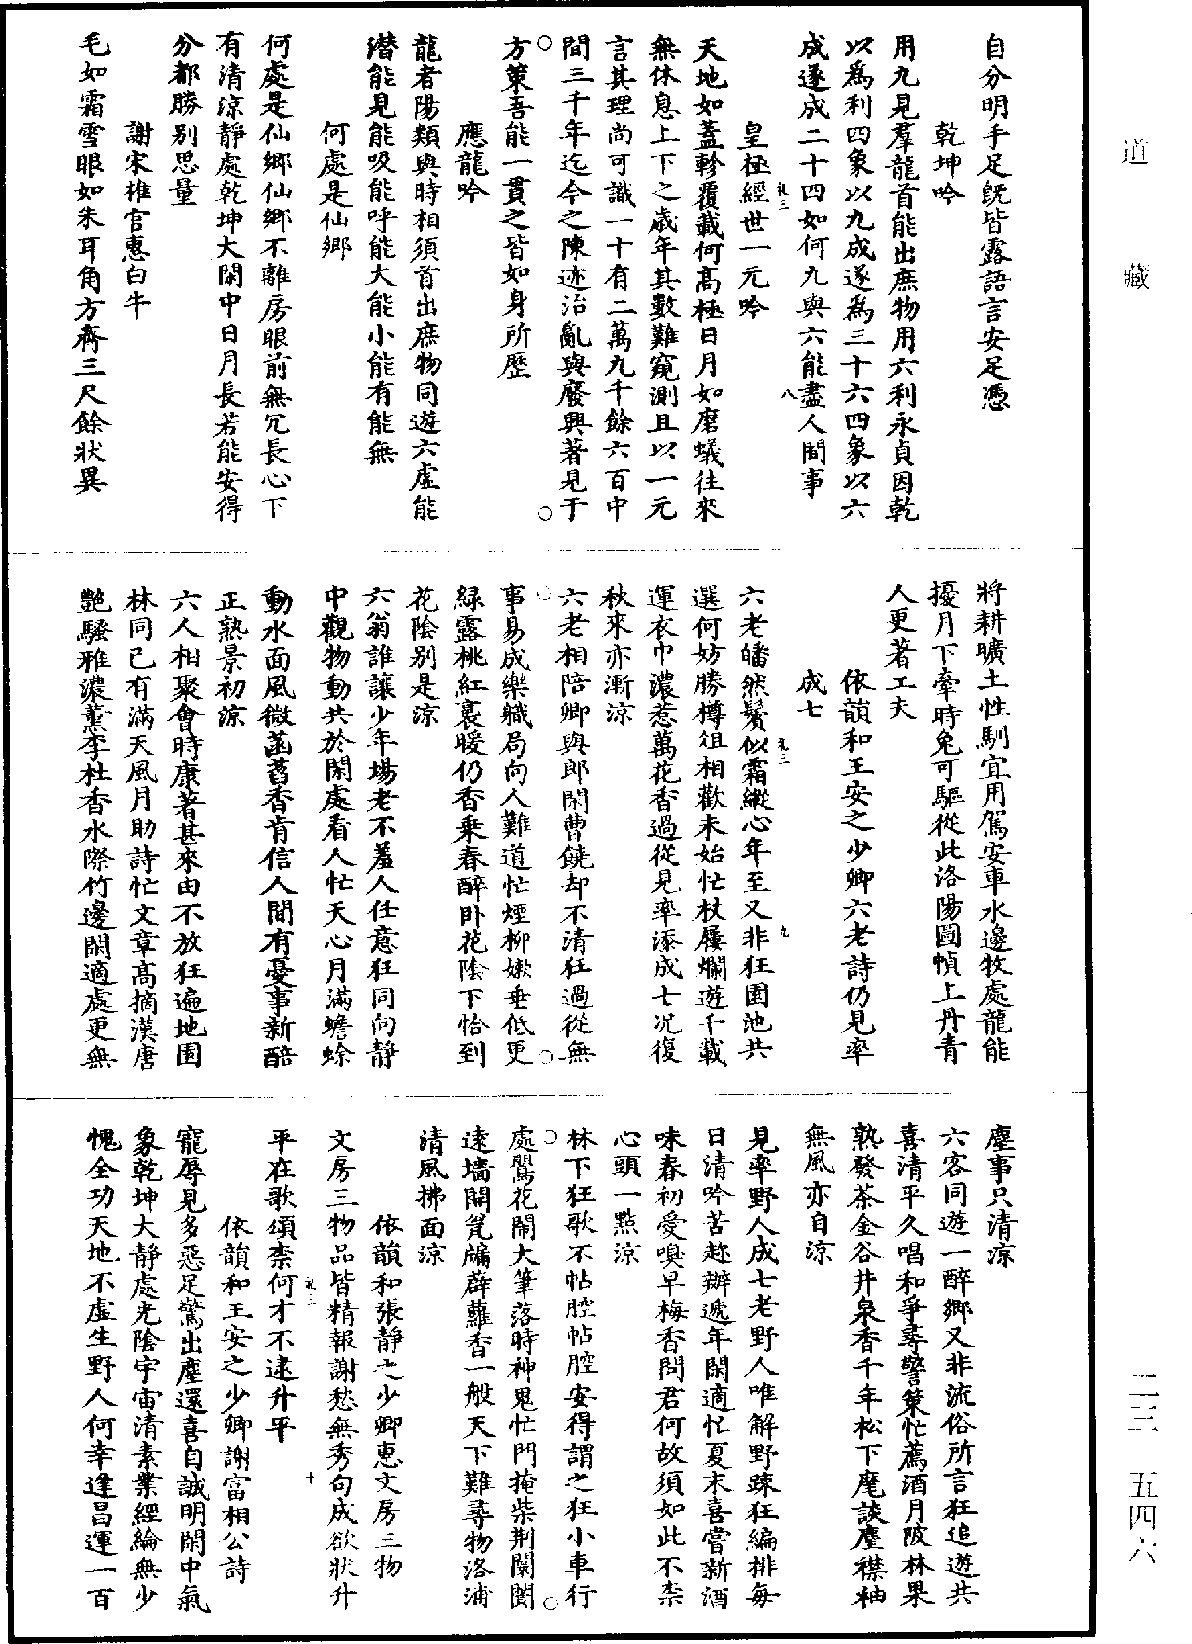 自分明手足旣皆露語言安足憑
乾坤吟
用九見羣龍首能出庶物用六利永貞因乾
以爲利四象以九成遂爲三十六四象以六
成遂成二十四如何九與六能盡人間事
皇極經世一元吟
天地如蓋軫覆載何高極日月如磨蟻往來
無休息上下之歲年其數難窺測且以一元
言其理尚可識一十有二萬九千餘六百中
間三千年迄今之陳迹治亂與廢興著見于
方策吾能一貫之皆如身所歷
應龍吟
龍者陽類與時相須首出庶物同遊六虛能
潛能見能吸能呼能大能小能有能無
何處是仙鄉
何處是仙鄉仙鄉不離房眼前無冗長心下
有清涼靜處乾坤大閑中日月長若能安得
分都勝別思量
謝宋推官惠白牛
毛如霜雪眼如朱耳角方齊三尺餘狀異
將耕曠土性馴宜用駕安車水邊牧處龍能
擾月下牽時兔可驅從此洛陽圖幀上丹青
人更著工夫
依韻和王安之少卿六老詩仍見率
成七
六老皤然鬢似霜縱心年至又非狂園池共
選何妨勝樽俎相歡未始忙杖屨爛遊千載
運衣巾濃惹萬花香過從見率添成七況復
秋來亦漸涼
六老相陪卿與郎閑曹饒却不清狂過從無
事易成樂職局向人難道忙煙柳嫰垂低更
綠露桃紅裛暖仍香乘春醉卧花陰下恰到
花陰别是涼
六翁誰讓少年場老不羞人任意狂同向靜
中觀物動共於閑處看人忙天心月滿蟾蜍
動水面風微菡萏香肯信人間有憂事新醅
正熟景初涼
六人相聚會時康著甚來由不放狂遍地園
林同已有滿天風月助詩忙文章高摘漢唐
艷騷雅濃薰李杜香水際竹邊閑適處更無
塵事只清涼
六客同遊一醉鄉又非流俗所言狂追遊共
喜清平久唱和爭尋警策忙薦酒月陂林果
熟發茶金谷井泉香千年松下麾談麈襟袖
無風亦自涼
見率野人成七老野人唯解野踈狂編排每
日清吟苦趂辦遞年閑適忙夏末喜嘗新酒
味春初愛嗅早梅香問君何故須如此不柰
心頭一點涼
林下狂歌不帖腔帖腔安得謂之狂小車行
處鶯花鬧大筆落時神鬼忙門掩柴荆闤闠
遠墻開瓮牖薜蘿香一般天下難尋物洛浦
清風拂面涼
依韻和張靜之少卿惠文房三物
文房三物品皆精報謝愁無秀句成欲狀升
平在歌頌柰何才不逮升平
依韻和王安之少卿謝富相公詩
寵辱見多惡足驚出塵還喜自誠明閑中氣
象乾坤大靜處光陰宇宙清素業經綸無少
愧全功天地不虛生野人何幸逢昌運一百
道藏
二三
五四六